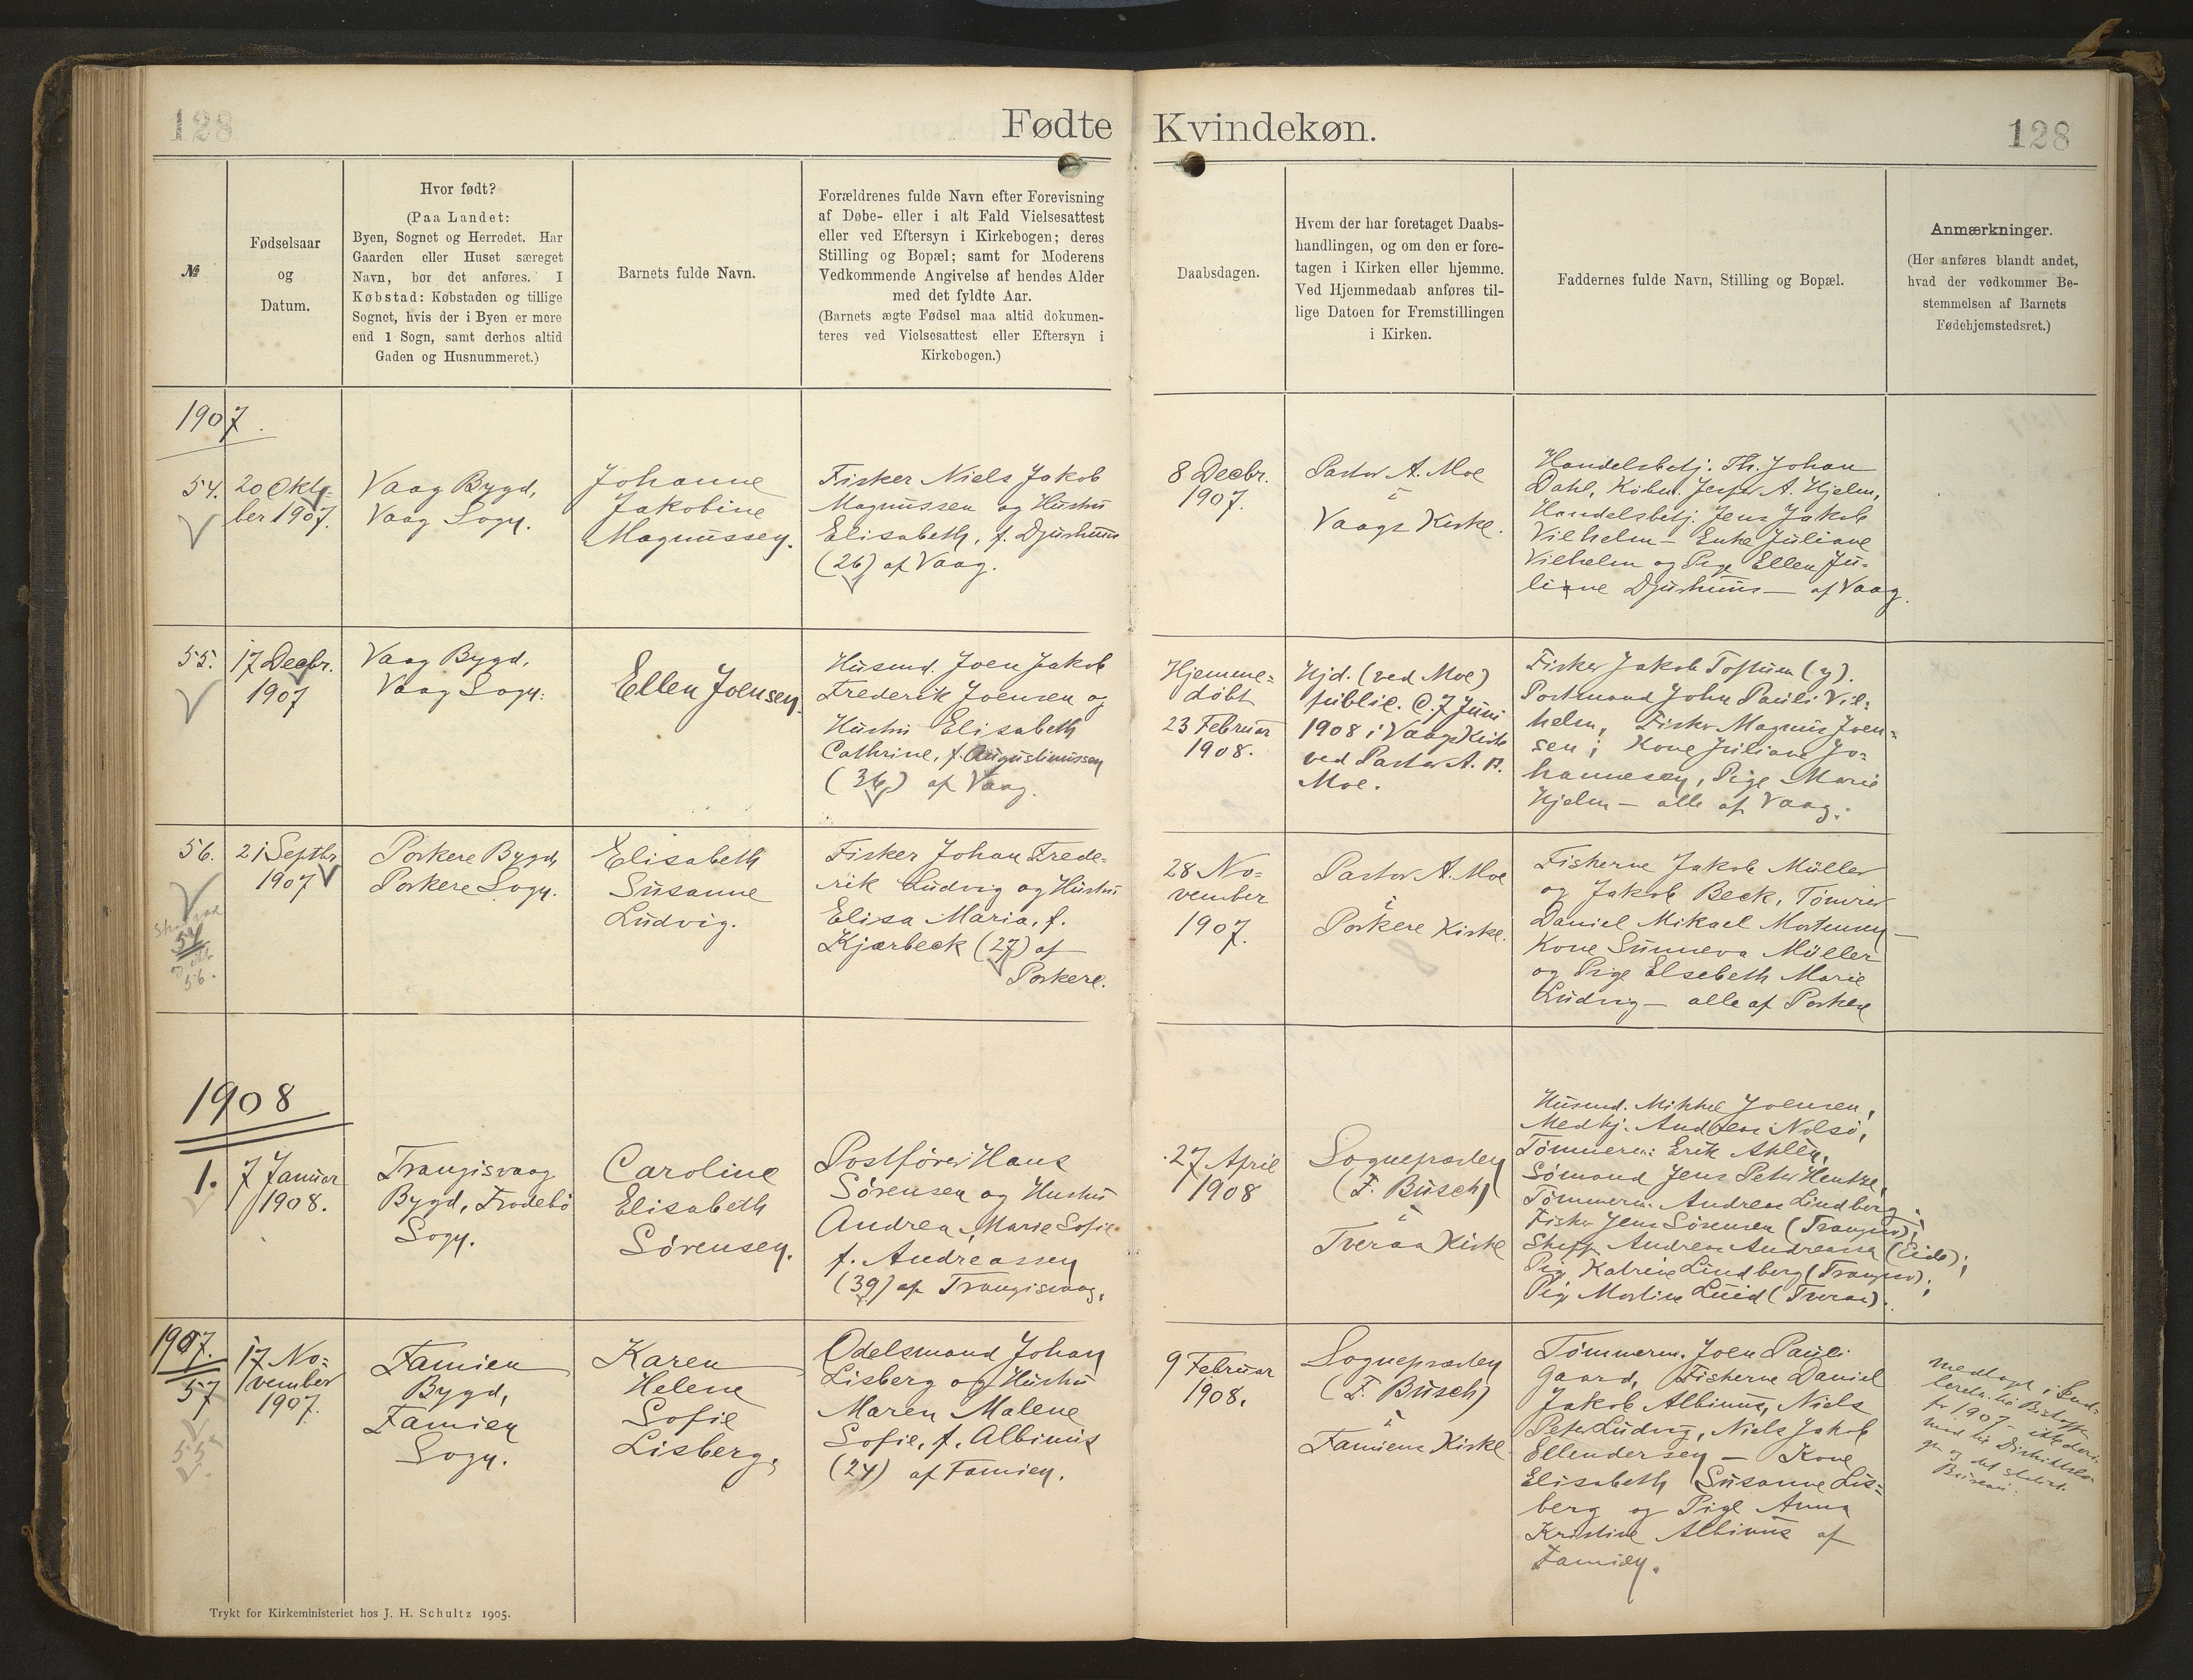 128
Fødte
Kvindekøn.
128
№
Fødselsaar
og
Datum.
Hvor født?
(Paa Landet:
Byen, Sognet og Herredet. Har
Gaarden eller Huset særeget
Navn, bør det anføres. I
Købstad: Købstaden og tillige
Sognet, hvis der i Byen er mere
end 1 Sogn, samt derhos altid
Gaden og Husnummeret.)
Barnets fulde Navn.
Forældrenes fulde Navn efter Forevisning
af Døbe- eller i alt Fald Vielsesattest
eller ved Eftersyn i Kirkebogen; deres
Stilling og Bopæl; samt for Moderens
Vedkommende Angivelse af hendes Alder
med det fyldte Aar.
(Barnets ægte Fødsel maa altid dokumen-
teres ved Vielsesattest eller Eftersyn i
Kirkebogen.)
Daabsdagen.
Hvem der har foretaget Daabs-
handlingen, og om den er fore-
tagen i Kirken eller hjemme.
Ved Hjemmedaab anføres til-
lige Datoen for Fremstillingen
i Kirken.
Faddernes fulde Navn, Stilling og Bopæl.
Anmærkninger.
(Her anføres blandt andet,
hvad der vedkommer Be-
stemmelsen af Barnets
Fødehjemstedsret.)
1907.
54.
20 Okto-
ber 1907.
Vaag Bygd,
Vaag Sogn.
Johanne
Jakobine
Magnussen.
Fisker Niels Jakob
Magnussen og Hustru
Elisabeth, f. Djurhuus
(26) af Vaag.
8 Decbr.
1907.
Pastor A. Moe
i
Vaags Kirke.
Handelsbetj. Th. Johan
Dahl, Købm. Jesper A. Hjelm,
Handelsbetj. Jens Jakob
Vilhelm — Enke Juliane
Vilhelm og Pige Ellen Ju-
liane Djurhuus — af Vaag.
55.
17 Decbr.
1907
Vaag Bygd,
Vaag Sogn.
Ellen Joensen.
Husmd. Joen Jakob
Frederik Joensen og
Hustru Elisabeth
Cathrine, f. Augustinussen
(36) af Vaag.
Hjemme-
døbt
23 Februar
1908.
Hjd. (ved Moe)
public. D. 7 Juni
1908 i Vaags Kirke
ved Pastor A. P.
Moe.
Fisker Jakob Tofsum (y).
Postmand John Pauli Vil-
helm, Fisker Magnus Joen-
sen; Kone Juliane Jo-
hannesen, Pige Marie
Hjelm — alle af Vaag.
56.
21 Septbr
1907
Porkere Bygd,
Porkere Sogn.
Elisabeth
Susanne
Ludvig.
Fisker Johan Frede-
rik Ludvig og Hustru
Elisa Maria, f.
Kjærbeck (27) af
Porkere.
28 No-
vember
1907.
Pastor A. Moe
i
Porkere Kirke.
Fiskerne Jakob Müller
og Jakob Beck, Tømrer
Daniel Mikael Mortensen —
Kone Sunneva Müller
og Pige Elsebeth Marie
Ludvig — alle af Porkere
54
56.
1908
1.
7 Januar
1908.
Trangisvaag
Bygd, Frodebø
Sogn.
Caroline
Elisabeth
Sørensen.
Postfører Hans
Sørensen og Hustru
Andrea Marie Sofie
f. Andreassen
(39) af Trangisvaag.
27 April
1908
Sognepræsten
(F. Busch)
i
Tveraa Kirke
Husmd. Mikkel Joensen,
Medhj. Andreas Nolsø,
Tømmerm. Erik Ahlen,
Sømand Jens Peter Hentze,
Tømmerm. Andreas Lindberg,
Fisker Jens Sørensen (Trangisv);
Skipp. Andreas Andreassen (Eide);
Pig. Katrine Lindberg (Trangisv);
Pige Martine Luid (Tveraa).
1907.
57
17 No-
vember
1907.
Famien
Bygd,
Famien
Sogn.
Karen
Helene
Sofie
Lisberg.
Odelsmand Johan
Lisberg og Hustru
Maren Malene
Sofie, f. Albinus
(24) af Famien.
9 Februar
1908.
Sognepræsten
(F. Busch)
i
Famiens Kirke
Tømmerm. Joen Pauli
Gaard, Fiskerne Daniel
Jakob Albinus, Niels
Peter Ludvig, Niels Jakob
Ellendersen — Kone
Elisabeth Susanne Lis-
berg og Pige Anna
Kristine Albinus af
Famien.
medtaget i
Bispen
for 1907 — ikke
med til
og det statist.
Bureau.
55
Trykt for Kirkeministeriet hos J. H. Schultz 1905.